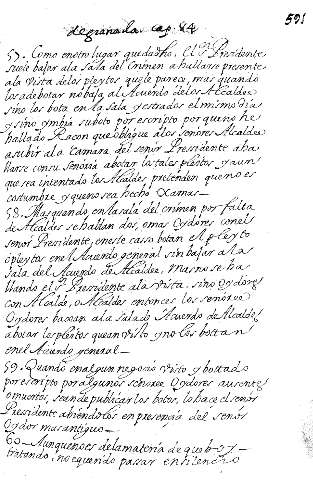 de granada. cap. 84
591
57. Como en otro lugar queda dho. El Sr. Presidente
suele bajar a la sala del Crimen a hallarse presente
a la vista de los pleytos que le pareze, mas quando
los a de botar no baja al Acuerdo de los Alcaldes
sino los bota en la sala y estrados el mismo dia
y sino ymbia su boto por escripto por que no he
hallado Racon que obligue a los señores Alcaldes
a subir a la Camara del señor Presidente a ha
llarse con su señoria a botar los tales pleitos y aun
que sea intentado los Alcaldes pretenden que no es
costumbre y que no sea hecho xamas
58. Mas quando en la sala del crimen por falta
de Alcaldes se hallan dos, o mas Oydores con el
señor Presidente, en este caso botan el pleyto
o pleytos en el Acuerdo general sin bajar a la
sala del Acuerdo de Alcaldes, mas no se ha
llando el Sr. Presidente a la vista, sino Oydores
con Alcalde, o Alcaldes entonces los señores
Oydores bajan a la sala del Acuerdo de Alcaldes
a botar los pleitos que an visto y no los bottan
en el Acuerdo general
59. Quando en algun negocio visto y bottado
por escripto por algunos señores Oydores ausentes
o muertos, se an de publicar los botos, lo hace el señor
Presidente abriendolos en presencia del señor
Oydor mas antiguo
60. Aunque no es de la materia de que boy
tratando, no e querido passar en silencio